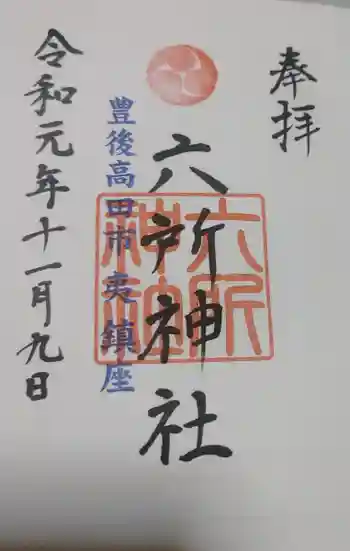 奉拝
六所神社
六所
神社
豊後高田市夷 鎮座
令和元年十一月九日